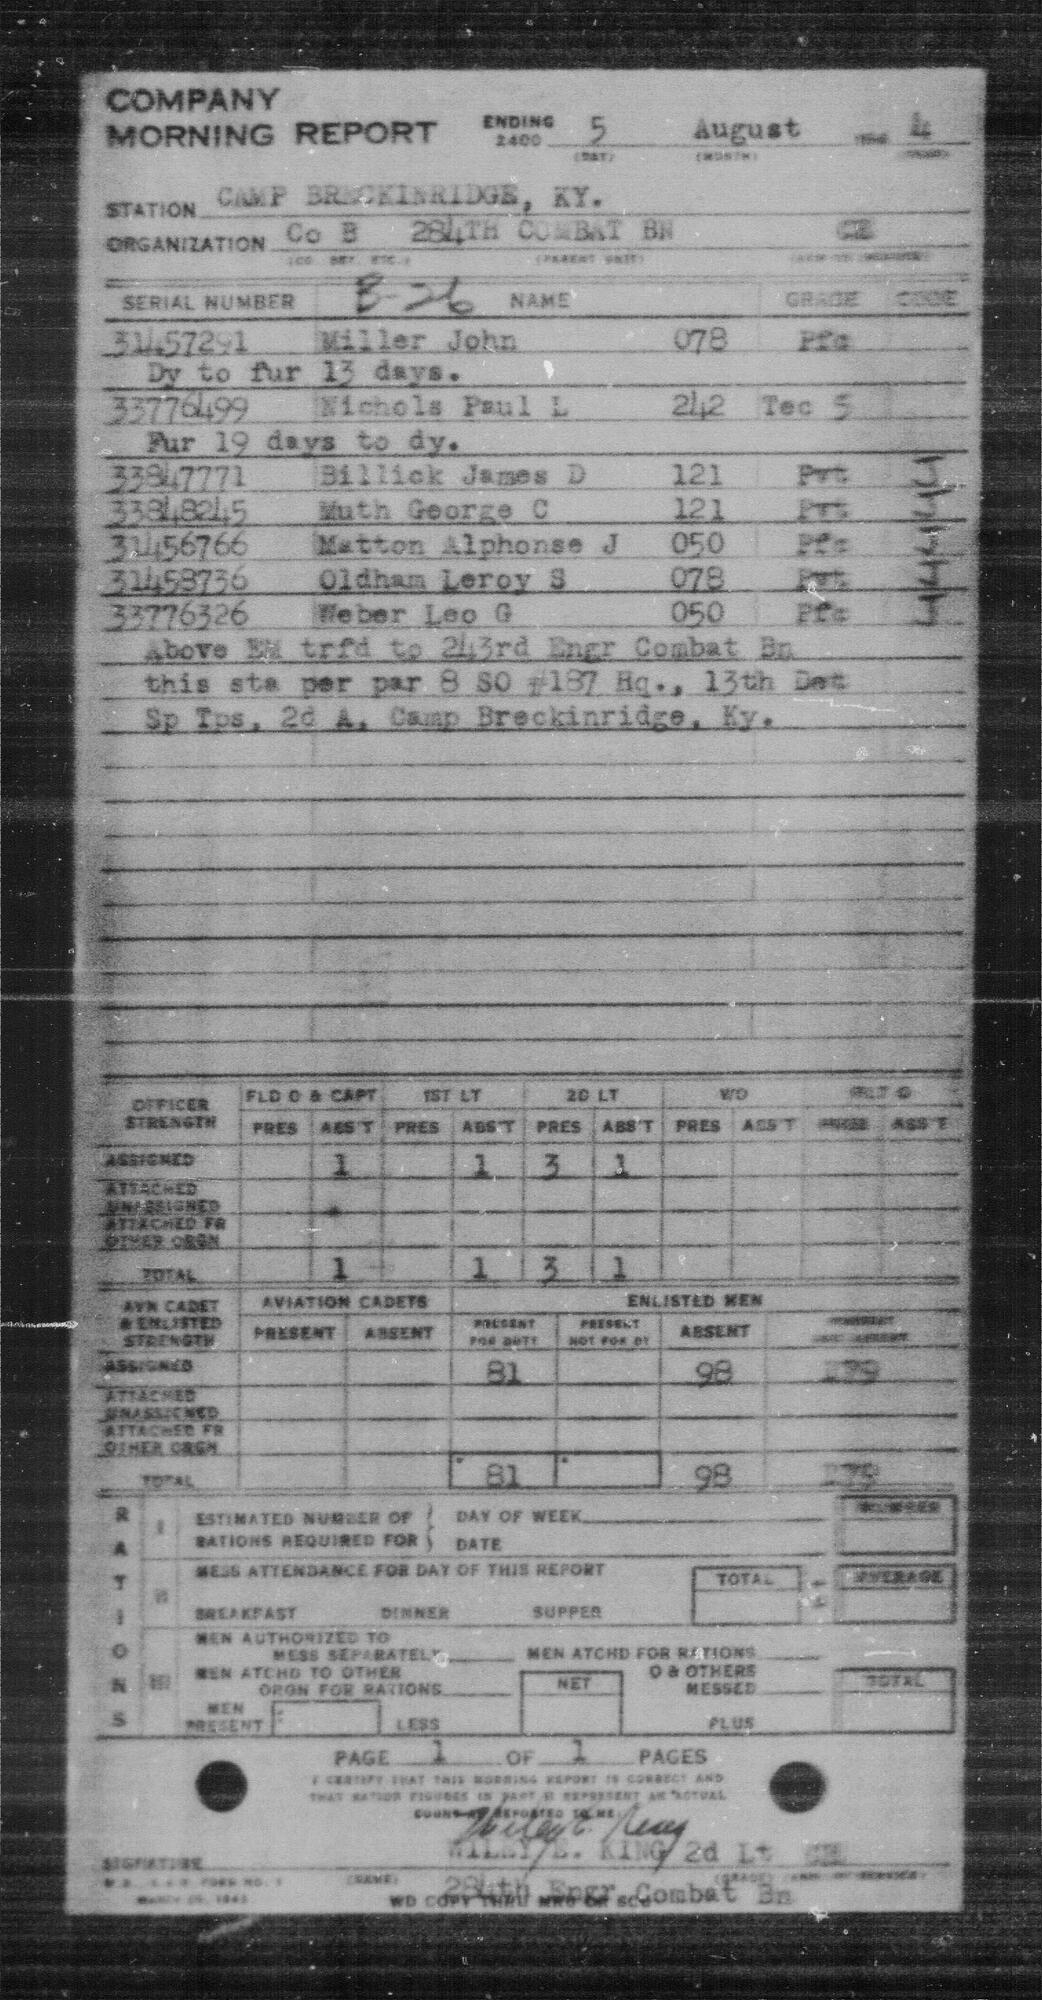 COMPANY
MORNING REPORT ENDING 2400 5 August 4
(DAY) (MONTH)
STATION CAMP BRECKINRIDGE, KY.
ORGANIZATION Co B 284TH COMBAT BN CE
(CO. DET. ETC.) (PARENT UNIT)
SERIAL NUMBER B-26 NAME GRADE CODE
31457291 Miller John 078 Pfc
Dy to fur 13 days.
33776499 Nichols Paul L 242 Tec 5
Fur 19 days to dy.
33847771 Billick James D 121 Pvt
33848245 Muth George C 121 Pvt
31456766 Matton Alphonse J 050 Pfc
31458736 Oldham Leroy S 078 Pvt
33776326 Weber Leo G 050 Pfc
Above EM trfd to 243rd Engr Combat Bn
this sta per par 8 SO #187 Hq., 13th Det
Sp Tps, 2d A, Camp Breckinridge, Ky.
OFFICER STRENGTH FLD O & CAPT 1ST LT 2D LT WO FLT O
PRES ABS'T PRES ABS'T PRES ABS'T PRES ABS'T PRES ABS'T
ASSIGNED 1 1 3 1
ATTACHED UNASSIGNED
ATTACHED FR OTHER ORGN
TOTAL 1 1 3 1
AVN CADET & ENLISTED STRENGTH AVIATION CADETS ENLISTED MEN
PRESENT ABSENT PRESENT FOR DUTY PRESENT NOT FOR DY ABSENT
ASSIGNED 81 98 179
ATTACHED UNASSIGNED
ATTACHED FR OTHER ORGN
TOTAL 81 98 179
RATIONS
I ESTIMATED NUMBER OF RATIONS REQUIRED FOR DAY OF WEEK NUMBER
DATE
II MESS ATTENDANCE FOR DAY OF THIS REPORT TOTAL AVERAGE
BREAKFAST DINNER SUPPER
III MEN AUTHORIZED TO MESS SEPARATELY MEN ATCHD FOR RATIONS
MEN ATCHD TO OTHER ORGN FOR RATIONS NET O & OTHERS MESSED TOTAL
MEN PRESENT LESS PLUS
PAGE 1 OF 1 PAGES
I CERTIFY THAT THIS MORNING REPORT IS CORRECT AND
THAT RATION FIGURES IN PART II REPRESENT AN ACTUAL
COUNT AS REPORTED TO ME
Wiley E. King
WILEY E. KING 2d Lt CE
SIGNATURE (NAME) (GRADE) (ARM OR SERVICE)
284th Engr Combat Bn
MARCH 29, 1943
WD COPY THRU MRU OR SCU